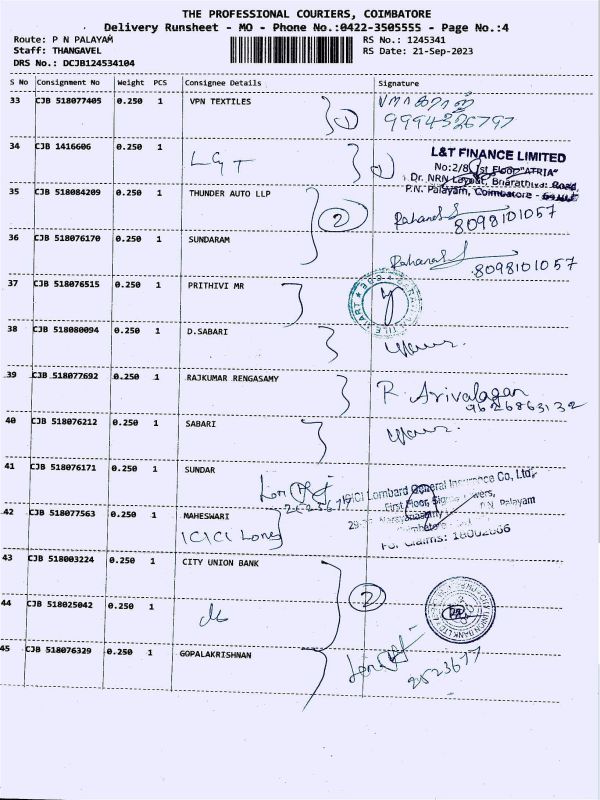 THE PROFESSIONAL COURIERS, COIMBATORE
Delivery Runsheet - MO - Phone No.:0422-3505555 - Page No.:4
Route: P N PALAYAM
RS No.: 1245341
Staff: THANGAVEL
RS Date: 21-Sep-2023
DRS No.: DCJB124534104
S No Consignment No Weight PCS Consignee Details Signature
33 CJB 518077405 0.250 1 VPN TEXTILES
1
9994326797
34 CJB 1416606 0.250 1
L&T
L&T FINANCE LIMITED
No:2/8, 1st Floor "ATRIA"
Dr. NRN Layout, Bharathiyar Road,
P.N. Palayam, Coimbatore -
35 CJB 518084209 0.250 1 THUNDER AUTO LLP
2
8098101057
36 CJB 518076170 0.250 1 SUNDARAM
8098101057
37 CJB 518076515 0.250 1 PRITHIVI MR
38 CJB 518080094 0.250 1 D.SABARI
39 CJB 518077692 0.250 1 RAJKUMAR RENGASAMY
R. Arivalagan
9626863132
40 CJB 518076212 0.250 1 SABARI
41 CJB 518076171 0.250 1 SUNDAR
ICICI Lombard General Insurance Co, Ltd,
First Floor,
P.N. Palayam
For Claims:
42 CJB 518077563 0.250 1 MAHESWARI
ICICI Long
43 CJB 518003224 0.250 1 CITY UNION BANK
2
44 CJB 518025042 0.250 1
do
45 CJB 518076329 0.250 1 GOPALAKRISHNAN
2523677